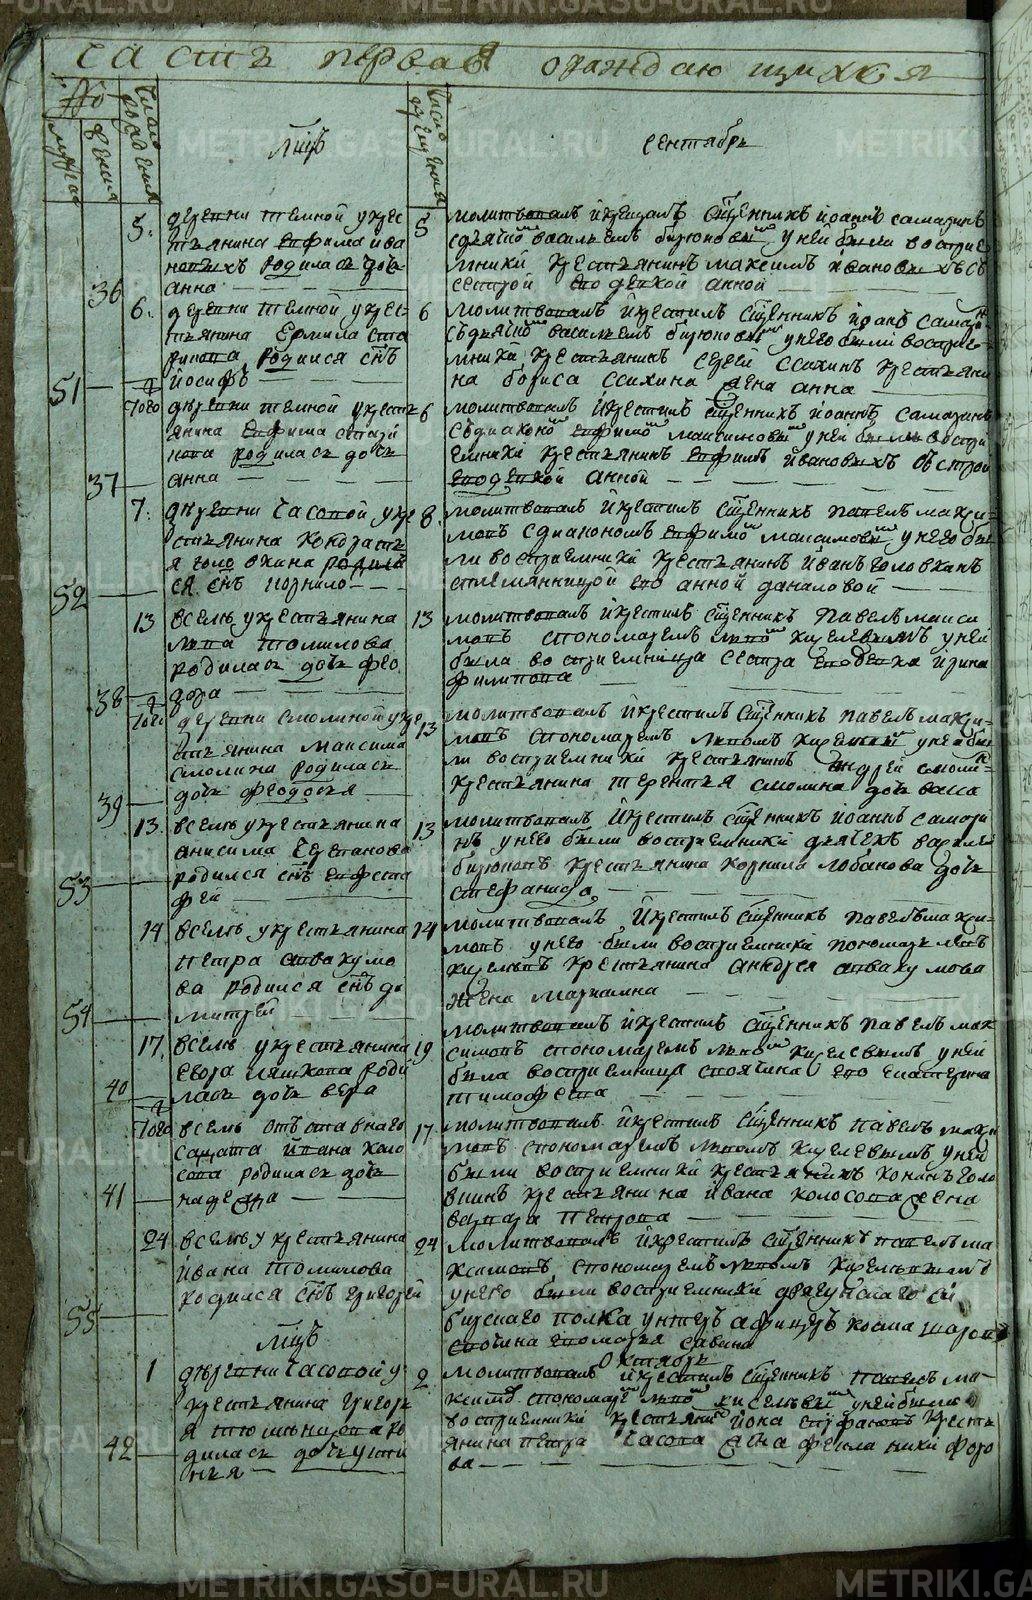 часть первая ораждающихся
No
Число рождения
Число крещения
мужска
женска
Мцъ
сентябрь
5.
деревни темной у крес
тьянина ефима ива
новыхъ родилась дочь
анна
5
молитвовалъ и крещалъ священникъ иоаннъ самаринъ
василиемъ бирюковымъ у ней были восприе
мники крестьянинъ максимъ ивановыхъ съ
сестрой его девкой анной
36
6.
деревни темной у крес
тьянина Ермила ста
рикова родился сынъ
иосифъ
6
молитвовалъ и крестилъ священникъ иоаннъ самарин
василиемъ бирюковымъ у него были восприе
мники крестьянинъ сергей крестьяни
на бориса жена анна
51
того
деревни темной у кресть
янина ефима
родилась дочь
анна
6
молитвовалъ и крестилъ священникъ иоаннъ самаринъ
съ диакономъ ефимомъ максимовымъ у ней были воспри
емники крестьянинъ ефимъ ивановыхъ
его девкой анной
37
7.
деревни часовой у кре
стьянина кондрать
я головхина родил
ся сынъ корнило
8.
молитвовалъ и крестилъ священникъ павелъ макси
мовъ с диакономъ ефимомъ максимовымъ у него бы
ли восприемники крестьянинъ иванъ головхинъ
сплемянницой его анной даниловой
52
13
в селе у крестьянина
льва томилова
родилась дочь фео
дора
13
молитвовалъ и крестилъ священникъ павелъ макси
мовъ с пономаремъ львомъ киселевымъ у ней
была восприемница сестра его девка ирина
филипова
38
того
деревни смолиной у кре
стьянина максима
смолина родилась
дочь феодосья
13
молитвовалъ и крестилъ священникъ павелъ макси
мовъ с пономаремъ львомъ киселевымъ у ней бы
ли восприемники крестьянинъ андрей смолин
крестьянина терентья смолина дочь васса
39
13.
в селе у крестьянина
анисима черепанова
родился сынъ евста
фей
13
молитвовалъ и крестилъ священникъ иоаннъ самари
нъ у него были восприемники дьячекъ василий
бирюковъ крестьянина корнила лобанова дочь
стефанида
53
14
в селе у крестьянина
петра аввакумо
ва родился сынъ ди
митрей
14
молитвовалъ и крестилъ священникъ павелъ макси
мовъ у него были восприемники пономарь левъ
киселевъ крестьянина андрея аввакумова
жена марианна
54
17.
в селе у крестьянина
егора ляшкова роди
лась дочь вера
19
молитвовалъ и крестилъ священникъ павелъ мак
симовъ с пономаремъ львомъ киселевымъ у ней
была восприемница своячина его екатерина
тимофеева
40
того
в селе отъ отставнаго
салдата ивана коло
сова родилась дочь
надежда
17
молитвовалъ и крестилъ священникъ павелъ макси
мовъ с пономаремъ львомъ киселевымъ у ней
были восприемники крестьянинъ конанъ голо
внинъ крестьянина ивана колосова жена
варвара петрова
41
24
в селе у крестьянина
ивана томилова
родился сынъ григорей
24
молитвовалъ и крестилъ священникъ павелъ ма
ксимовъ с пономаремъ львомъ киселевымъ
у него были восприемники драгунскаго си
бирскаго полка унтеръ афицеръ косма шаров
своячина его марья савина
55
Мцъ
Октябрь
1
деревни часовой у
крестьянина григорь
я ро
дилась дочь усти
нья
2
молитвовалъ и крестилъ священникъ павелъ ма
ксимовъ с пономаремъ львомъ киселевымъ у ней были
восприемники крестьянинъ иона кресть
янина петра часова жена фекла никифоро
ва
42